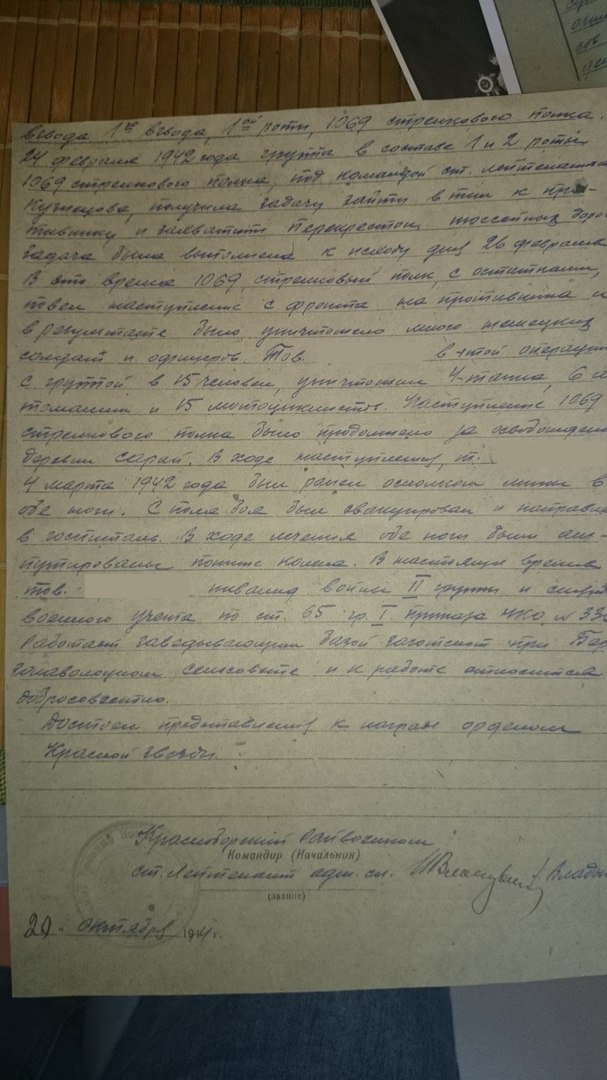 взвода 1го взвода, 1ой роты, 1069 стрелкового полка.
24 февраля 1942 года группа в составе 1 и 2 роты
1069 стрелкового полка, под командой ст. лейтенанта
Кузнецова, получила задачу зайти в тыл к про-
тивнику и захватить перекресток шоссейных доро
задача была выполнена к исходу дня 26 февраля
В это время 1069 стрелковый полк, с остатками,
повел наступление с фронта на противника и
в результате было уничтожено много немецких
солдат и офицеров. Тов. в этой операции
с группой в 15 человек, уничтожил 4-танка, 6 а
томашин и 15 мотоциклистов. Наступление 1069
стрелкового полка было продолжено за освобожден
деревни сарай. В ходе наступления, т.
4 марта 1942 года был ранен осколком мины в
обе ноги. С поля боя был эвакуирован и направле
в госпиталь. В ходе лечения обе ноги были ам-
путированы пониже колена. В настоящее время
тов. инвалид войны II группы и снят
военного учета по ст. 65 гр. I приказа НКО № 336
Работает заведывающим базой заготскот при
сельсовете и к работе относится
добросовестно.
Достоин представления к награде орденом
Красной звезды.
Красноборский Райвоенком
Командир (Начальник)
ст. Лейтенант адм. сл.
(звание)
20 октября 194 г.